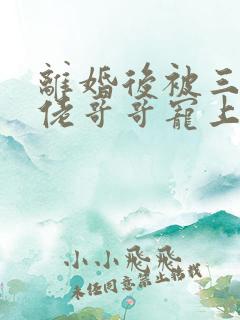 離婚後被三
佬哥哥寵上
小小飛飛
未任同意禁止轉載